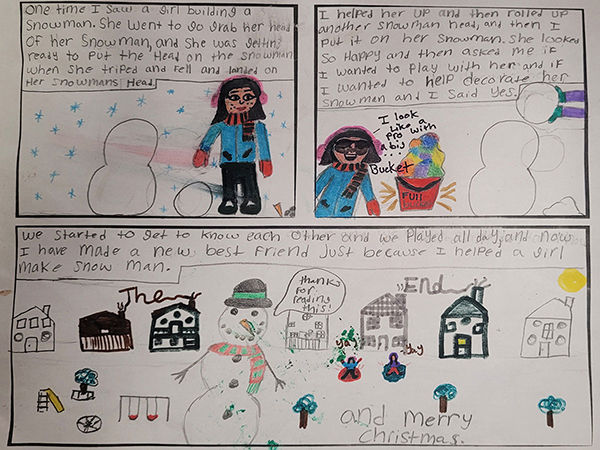 one time I saw a girl building a
snowman. She went to go grab her head
of her snowman, and she was getting
ready to put the head on the snowman
when she triped and fell and landed on
Her snowmans Head.
I helped her up and then rolled up
another snowman head, and then I
put it on her snowman. She looked
so Happy and then asked me if
I wanted to play with her and if
I wanted to help decorate her
snowman and I said yes.
I look
Like a
pro with
a big ...
Bucket
FUll
we started to get to know each other and we played all day, and now
I have made a new best friend just because I helped a girl
make snow man.
The End
thanks
For
reading
this!
ya!
yay
and merry
christmas.